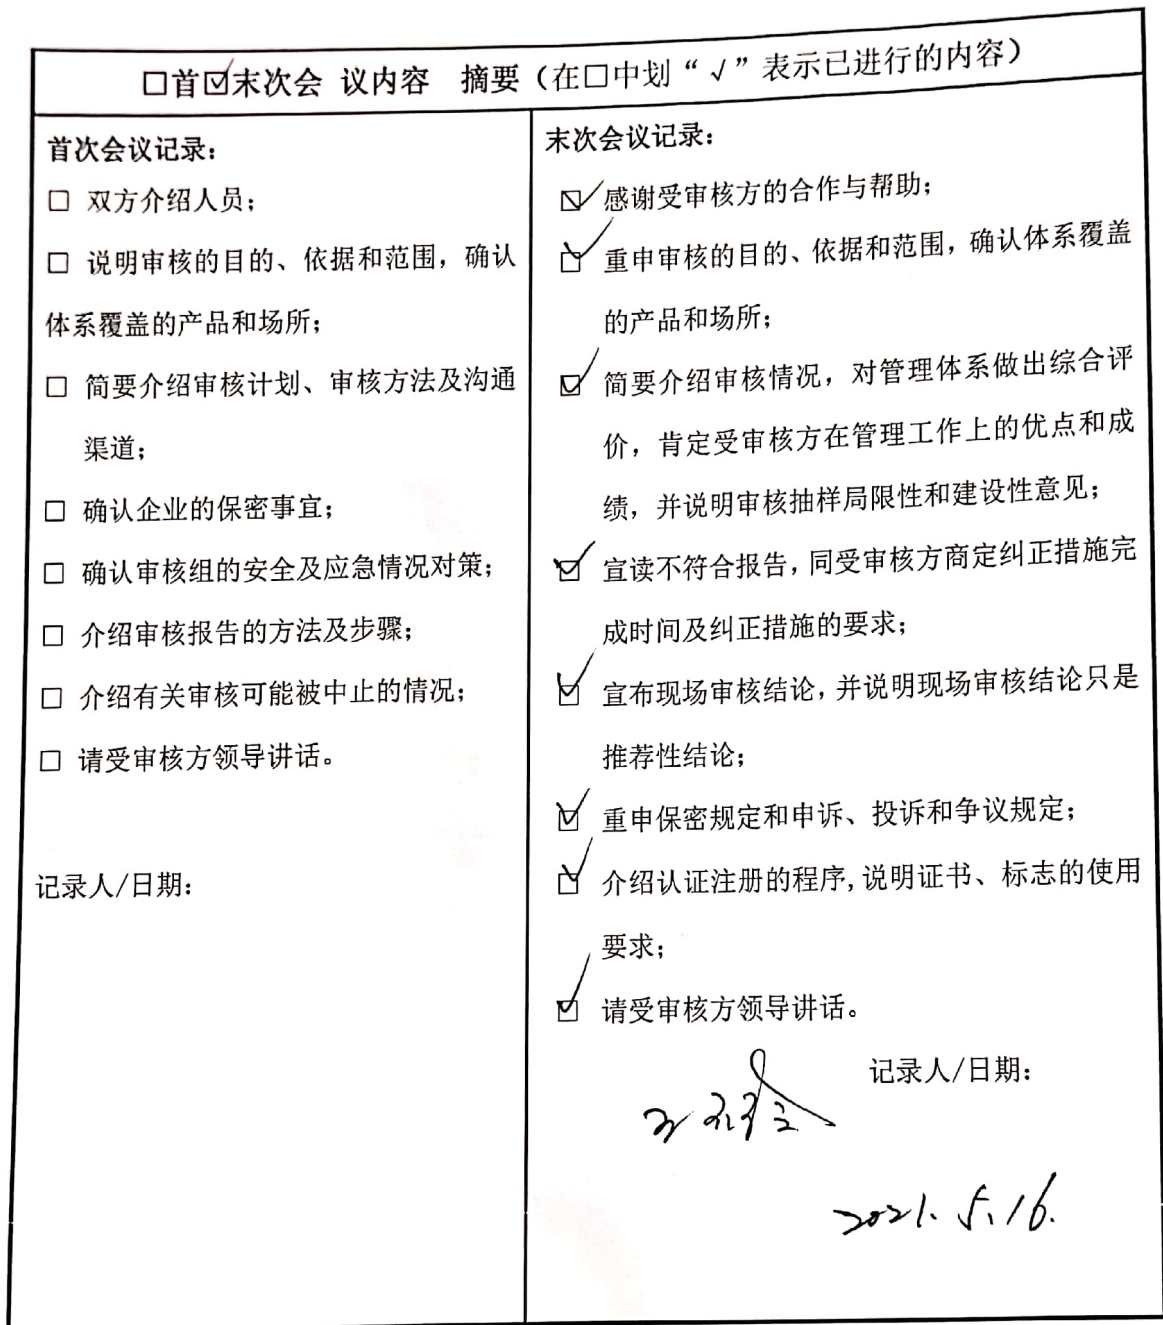 □首☑末次会 议内容 摘要（在□中划“√”表示已进行的内容）
首次会议记录：
□ 双方介绍人员；
□ 说明审核的目的、依据和范围，确认
体系覆盖的产品和场所；
□ 简要介绍审核计划、审核方法及沟通
渠道；
□ 确认企业的保密事宜；
□ 确认审核组的安全及应急情况对策；
□ 介绍审核报告的方法及步骤；
□ 介绍有关审核可能被中止的情况；
□ 请受审核方领导讲话。
记录人/日期：
末次会议记录：
☑ 感谢受审核方的合作与帮助；
☑ 重申审核的目的、依据和范围，确认体系覆盖
的产品和场所；
☑ 简要介绍审核情况，对管理体系做出综合评
价，肯定受审核方在管理工作上的优点和成
绩，并说明审核抽样局限性和建设性意见；
☑ 宣读不符合报告，同受审核方商定纠正措施完
成时间及纠正措施的要求；
☑ 宣布现场审核结论，并说明现场审核结论只是
推荐性结论；
☑ 重申保密规定和申诉、投诉和争议规定；
☑ 介绍认证注册的程序,说明证书、标志的使用
要求；
☑ 请受审核方领导讲话。
记录人/日期：
2021.5.16.